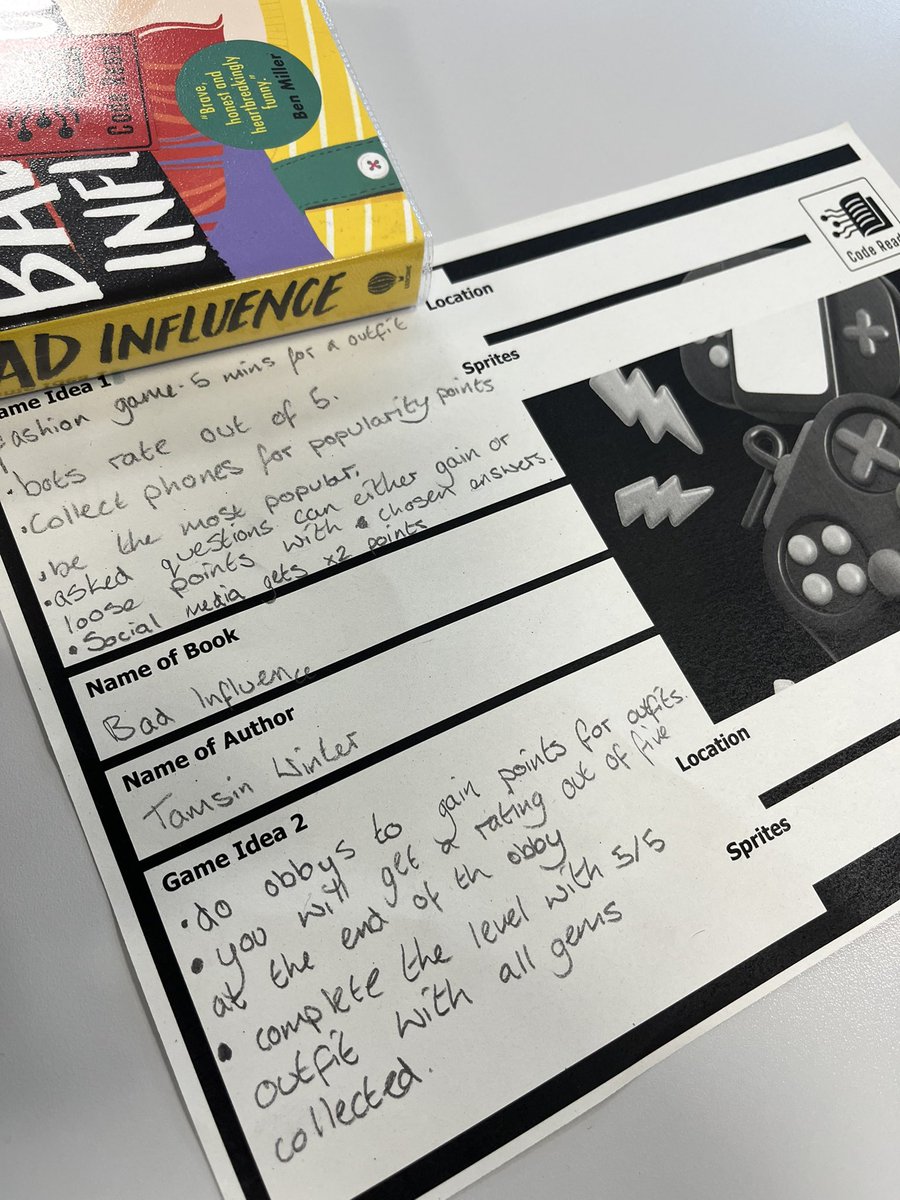 "Brave,
honest and
heartbreakingly
funny."
Ben Miller
Code Read
BAD
INFL
AD INFLUENCE
Code Read
Location
Sprites
ame Idea 1
Fashion game. 5 mins for a outfit
• bots rate out of 5.
• Collect phones for popularity points
• be the most popular.
• asked questions can either gain or
loose points with chosen answers.
• Social media gets x2 points
Name of Book
Bad Influence
Name of Author
Tamsin Winter
Game Idea 2
• do obbys to gain points for outfits.
• you will get a rating out of five
at the end of th obby
• complete the level with 5/5
outfit with all gems
collected.
Location
Sprites